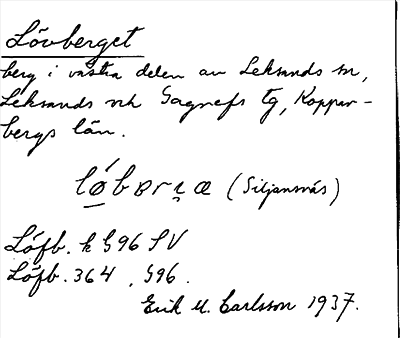 Lövberget
berg i västra delen av Leksands sn,
Leksands och Gagnefs tg, Koppar-
bergs län.
(Siljansnäs)
Löfb. k S96 SV
Löfb. 364 . S96.
Erik M. Carlsson 1937.